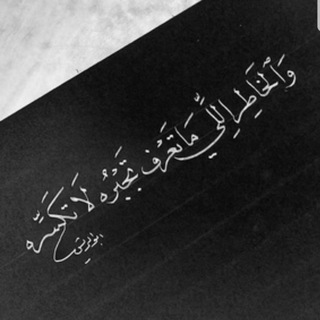 وَالخَاطِر اللِّي مَا تَعَرْف تجَبْرُه لَا تَكَسَّرَه